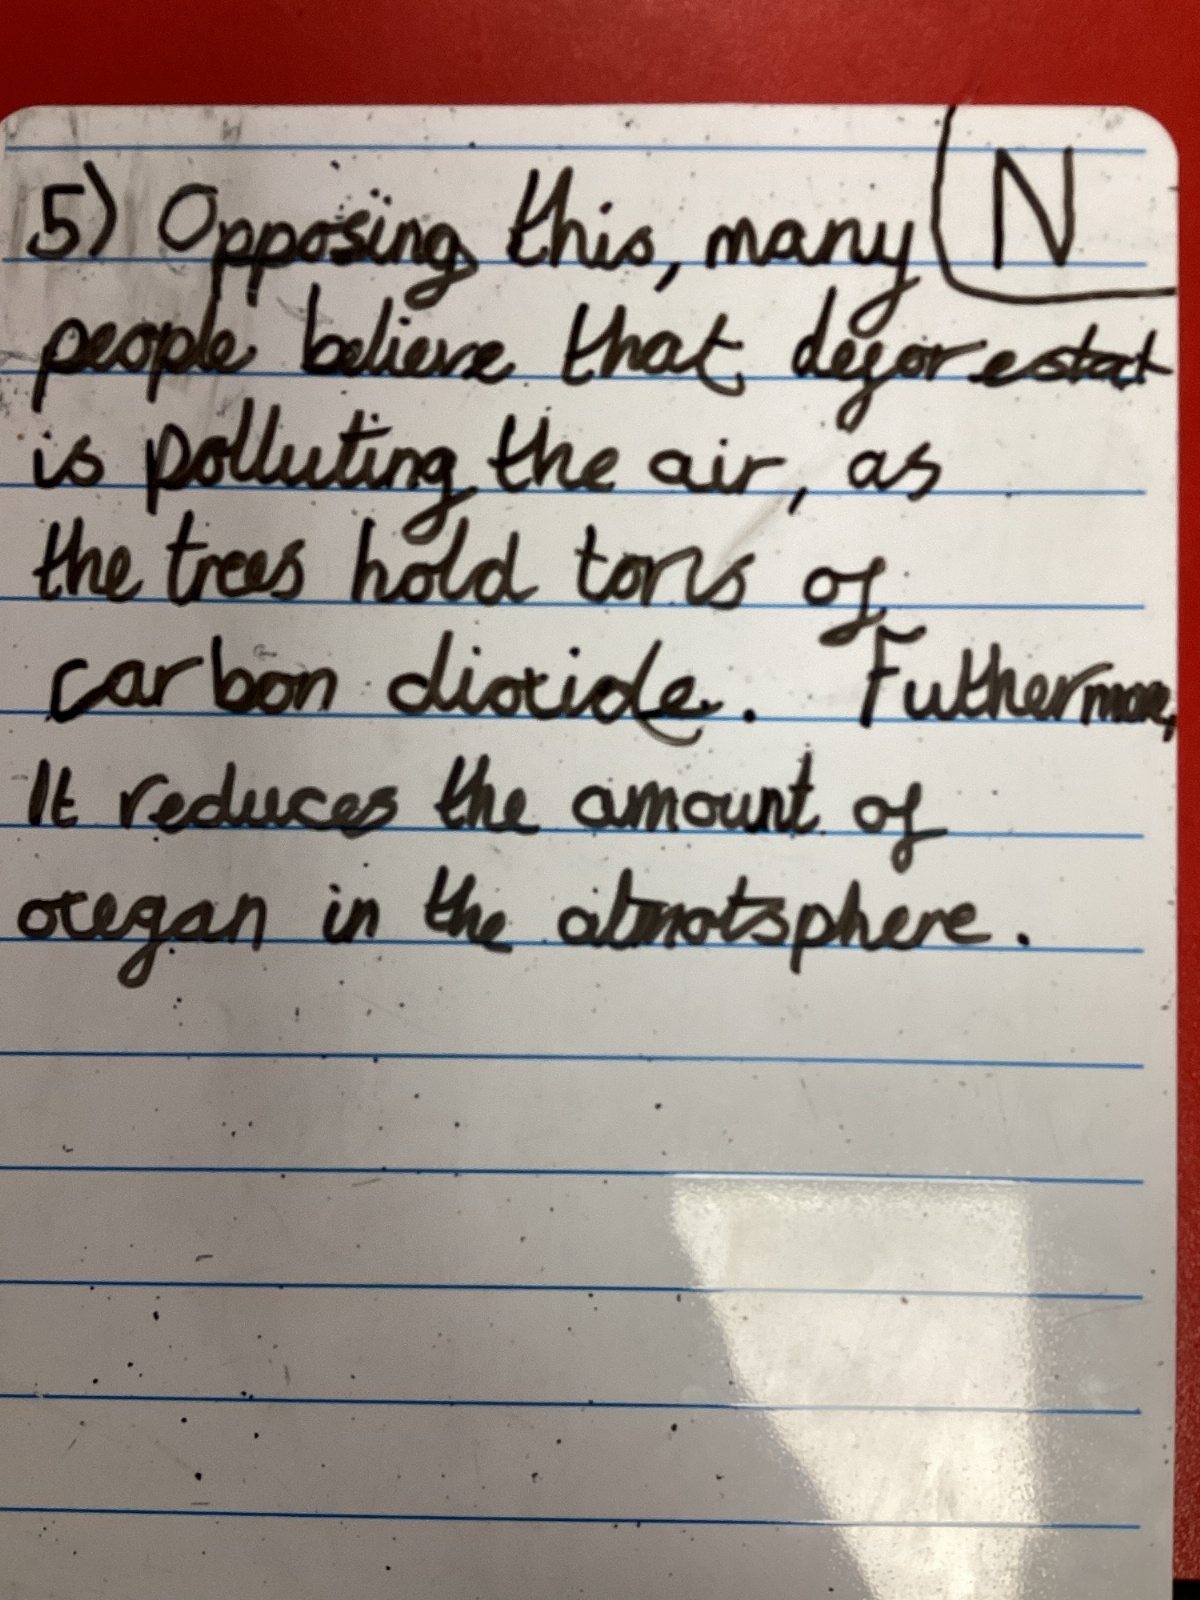 N
5) Opposing this, many
people believe that deforestat
is polluting the air, as
the trees hold tons of
carbon dioxide. Futhermore,
It reduces the amount of
oxegan in the atmotsphere.